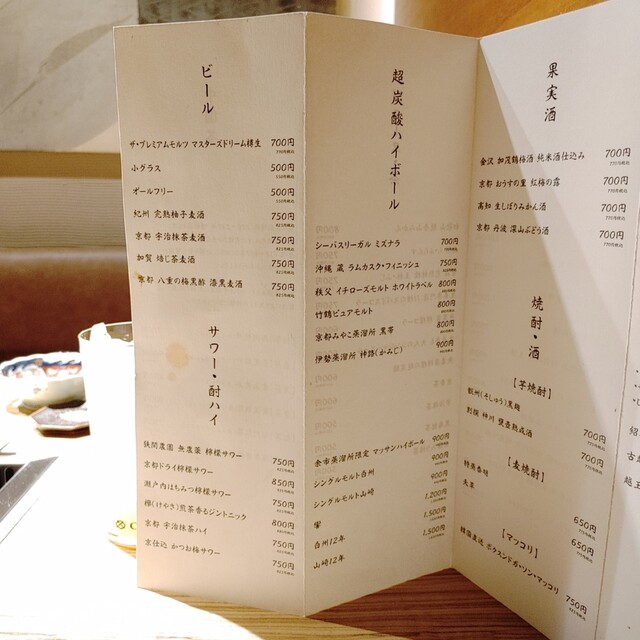 ビール
ザ・プレミアムモルツ マスターズドリーム樽生 700円
小グラス 500円
オールフリー 500円
紀州 完熟柚子麦酒 750円
京都 宇治抹茶麦酒 750円
加賀 焙じ茶麦酒 750円
京都 八重の梅黒酢 漆黒麦酒 750円
サワー・酎ハイ
狭間農園 無農薬 檸檬サワー 750円
京都ドライ檸檬サワー 850円
瀬戸内はちみつ檸檬サワー 750円
欅(けやき)煎茶香るジントニック 800円
京都 宇治抹茶ハイ 750円
京仕込 かつお梅サワー 750円
超炭酸ハイボール
シーバスリーガル ミズナラ 700円
沖縄 蔵 ラムカスク・フィニッシュ 750円
秩父 イチローズモルト ホワイトラベル 800円
竹鶴ピュアモルト 800円
京都みやこ蒸溜所 黒帯 800円
伊勢蒸溜所 神路(かみじ) 900円
余市蒸溜所限定 マッサンハイボール 900円
シングルモルト白州 900円
シングルモルト山崎 1,200円
響 1,500円
白州12年 1,500円
山崎12年
果実酒
金沢 加茂鶴梅酒 純米酒仕込み 700円
京都 おうすの里 紅梅の露 700円
高知 生しぼりみかん酒 700円
京都 丹波 深山ぶどう酒 700円
焼酎・酒
【芋焼酎】
(そしゅう)黒麹 700円
野狼 神川 甕壺熟成酒 700円
【麦焼酎】
特蒸泰明 650円
天草 650円
【マッコリ】
韓国直送 ボクスンドガ・ソン・マッコリ 750円